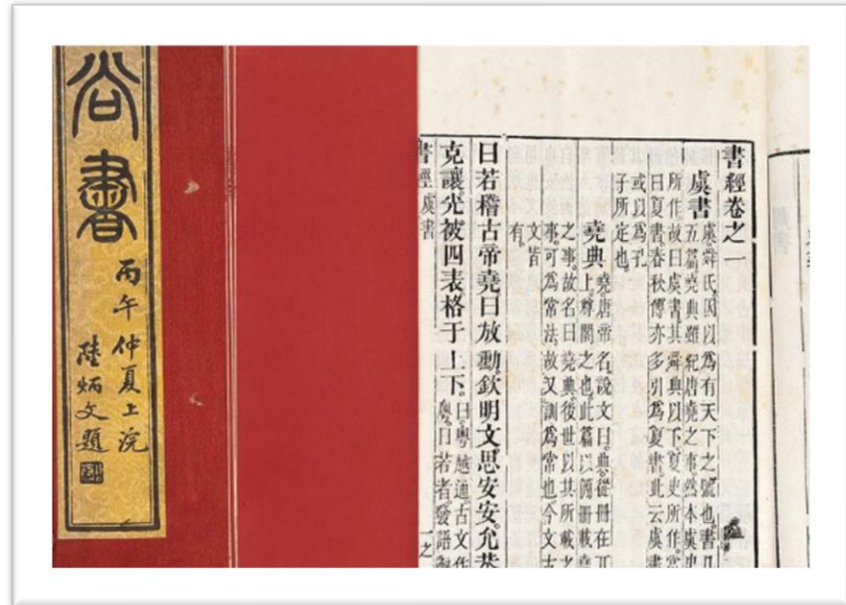 尚書
丙午仲夏上浣
陸炳文題
書經卷之一
虞書 虞舜氏因以爲有天下之號也書凡
五篇堯典雖紀唐堯之事然本虞史
所作故曰虞書其舜典以下夏史所作當
曰夏書春秋傳亦多引爲夏書此云虞書
或以爲孔
子所定也。
堯典 堯唐帝名說文曰典從冊在丌
上。尊閣之也此篇以簡冊載堯
之事。故名曰堯典。後世以其所載之
事。可爲常法。故又訓爲常也。今文古
文皆
有。
曰若稽古帝堯曰放勳欽明文思安安。允恭
克讓。光被四表格于上下。 曰粵越通。古文作
粵。曰若者。發語辭
書經 虞書 一之